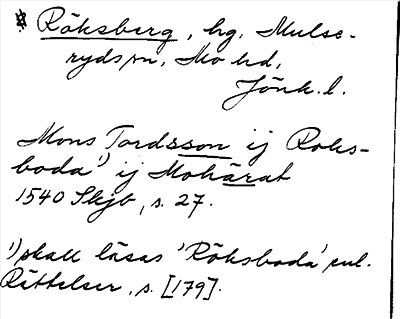 * Röksberg, hg, Mulse-
ryds sn, Mo hd,
Jönk. l.
Mons Tordsson ij Roks-
boda¹) ij Mohärat
1540 Skjb, s. 27.
¹) skall läsas 'Röksboda' enl.
Rättelser, s. [179].